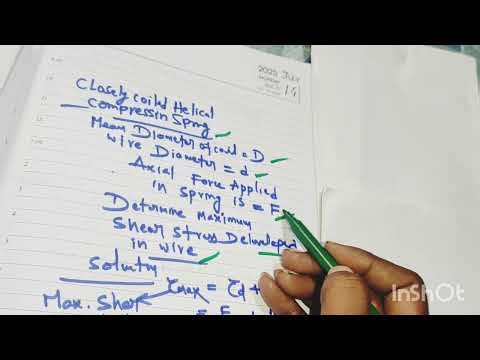 2025 JULY
14
Closely coiled Helical
compressin Spring
Mean Diameter of coil = D
wire Diameter = d
Axial Force Applied
in spring is = F
Determine maximum
Shear stress Delveloped
in wire
Solutn
Max. Shear τmax = τd +
InShOt